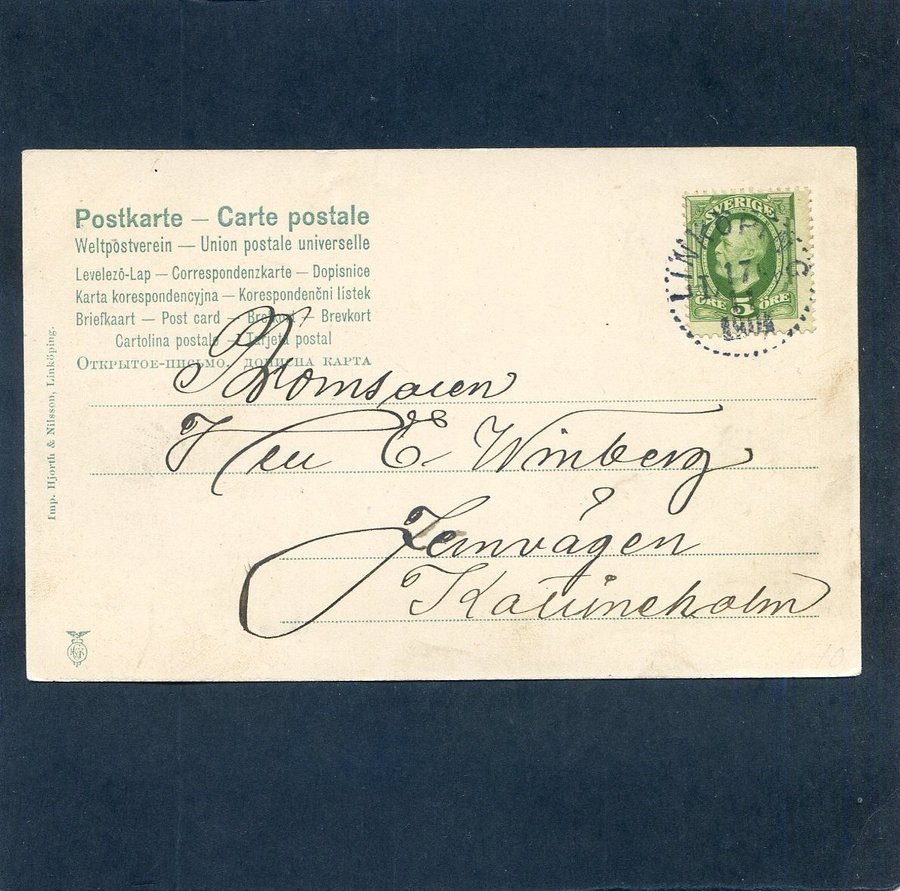 Postkarte — Carte postale
Weltpostverein — Union postale universelle
Levelező-Lap — Correspondenzkarte — Dopisnice
Karta korespondencyjna — Korespondenčni listek
Briefkaart — Post card — Brefkort — Brevkort
Cartolina postale — Tarjeta postal
Открытое-письмо. дописна карта
SVERIGE
5
ÖRE ÖRE
LINKÖPING
17
5
1904
E Winberg
Jernvägen
Katrineholm
Imp. Hjorth & Nilsson, Linköping.
10